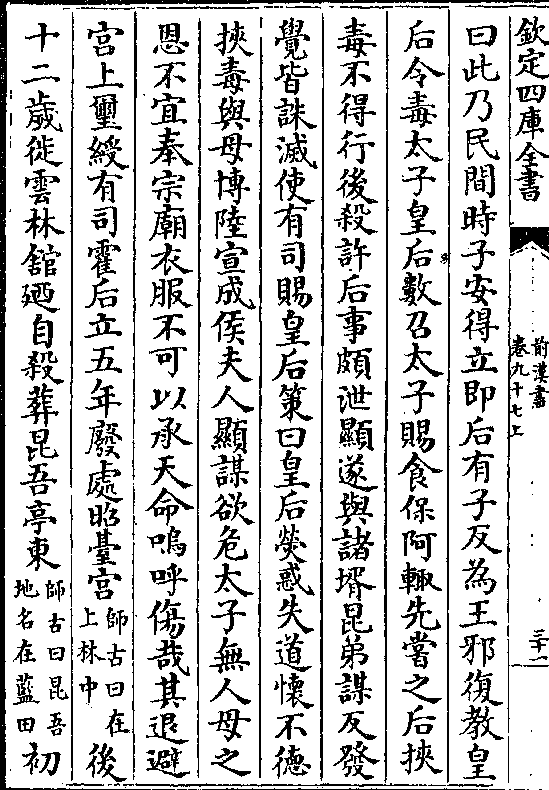 欽定四庫全書
前漢書
卷九十七上
三十一
曰此乃民間時子安得立即后有子反為王邪復教皇
后令毒太子皇后數召太子賜食保阿輙先嘗之后挾
毒不得行後殺許后事頗泄顯遂與諸壻昆弟謀反發
覺皆誅滅使有司賜皇后策曰皇后熒惑失道懷不德
挾毒與母博陸宣成侯夫人顯謀欲危太子無人母之
恩不宜奉宗廟衣服不可以承天命嗚呼傷哉其退避
宮上璽綬有司霍后立五年廢處昭臺宮師古曰在上林中後
十二歲徙雲林舘廼自殺葬昆吾亭東師古曰昆吾地名在藍田初